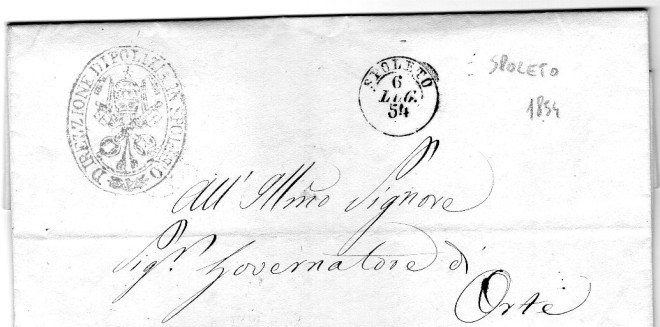 DIREZZIONE DI POLIZIA IN SPOLETO
SPOLETO
6
LUG.
54
SPOLETO
1854
All' Illmo Signore
Sigr. Governatore di
Orte